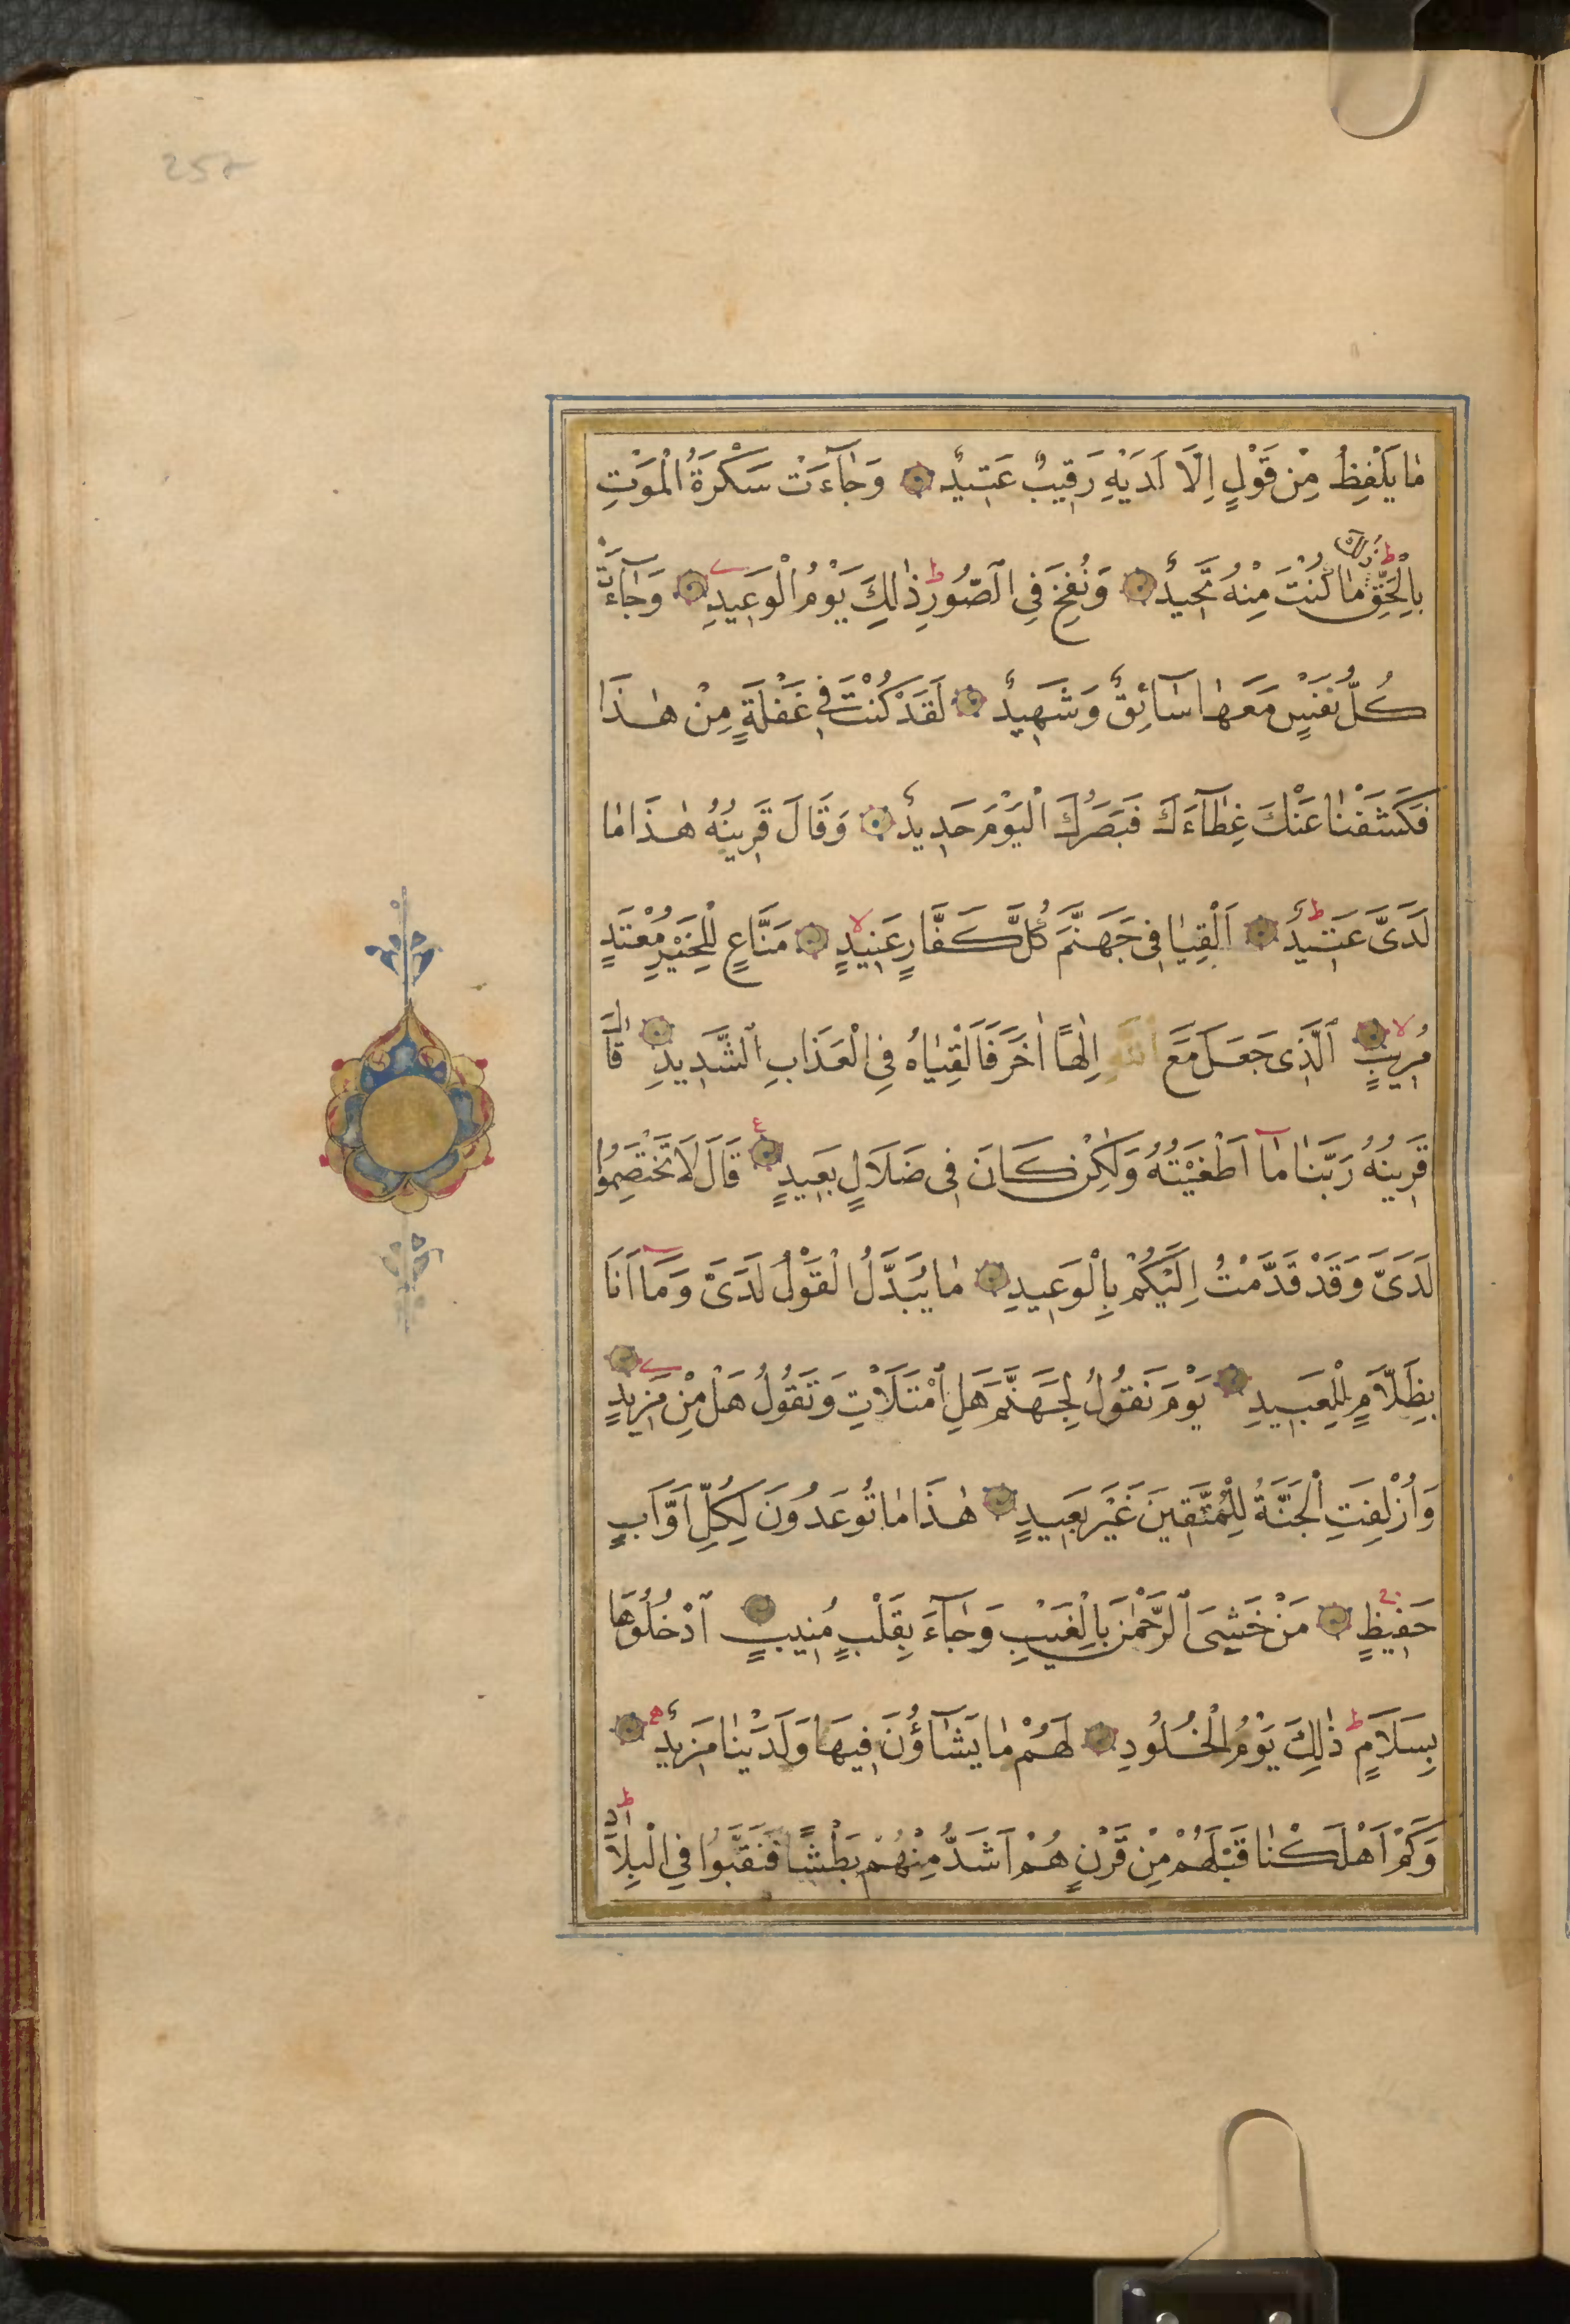 257
مَا يَلْفِظُ مِنْ قَوْلٍ اِلَّا لَدَيْهِ رَقِيبٌ عَتِيدٌ وَجَآءَتْ سَكْرَةُ الْمَوْتِ
بِالْحَقِّ ط ذٰلِكَ مَا كُنْتَ مِنْهُ تَحِيدُ وَنُفِخَ فِى الصُّورِ ط ذٰلِكَ يَوْمُ الْوَعِيدِ وَجَآءَتْ
كُلُّ نَفْسٍ مَعَهَا سَآئِقٌ وَشَهِيدٌ لَقَدْ كُنْتَ فِى غَفْلَةٍ مِنْ هٰذَا
فَكَشَفْنَا عَنْكَ غِطَآءَكَ فَبَصَرُكَ الْيَوْمَ حَدِيدٌ وَقَالَ قَرِينُهُ هٰذَا مَا
لَدَىَّ عَتِيدٌ ط اَلْقِيَا فِى جَهَنَّمَ كُلَّ كَفَّارٍ عَنِيدٍ لا مَنَّاعٍ لِلْخَيْرِ مُعْتَدٍ
مُرِيبٍ لا اَلَّذِى جَعَلَ مَعَ اللّٰهِ اِلٰهًا اٰخَرَ فَاَلْقِيَاهُ فِى الْعَذَابِ الشَّدِيدِ قَالَ
قَرِينُهُ رَبَّنَا مَآ اَطْغَيْتُهُ وَلٰكِنْ كَانَ فِى ضَلَالٍ بَعِيدٍ ع قَالَ لَا تَخْتَصِمُوا
لَدَىَّ وَقَدْ قَدَّمْتُ اِلَيْكُمْ بِالْوَعِيدِ مَا يُبَدَّلُ الْقَوْلُ لَدَىَّ وَمَآ اَنَا
بِظَلَّامٍ لِلْعَبِيدِ يَوْمَ نَقُولُ لِجَهَنَّمَ هَلِ امْتَلَاْتِ وَتَقُولُ هَلْ مِنْ مَزِيدٍ
وَاُزْلِفَتِ الْجَنَّةُ لِلْمُتَّقِينَ غَيْرَ بَعِيدٍ هٰذَا مَا تُوعَدُونَ لِكُلِّ اَوَّابٍ
حَفِيظٍ مَنْ خَشِىَ الرَّحْمٰنَ بِالْغَيْبِ وَجَآءَ بِقَلْبٍ مُنِيبٍ اُدْخُلُوهَا
بِسَلَامٍ ط ذٰلِكَ يَوْمُ الْخُلُودِ لَهُمْ مَا يَشَآؤُنَ فِيهَا وَلَدَيْنَا مَزِيدٌ
وَكَمْ اَهْلَكْنَا قَبْلَهُمْ مِنْ قَرْنٍ هُمْ اَشَدُّ مِنْهُمْ بَطْشًا فَنَقَّبُوا فِى الْبِلَادِ ط